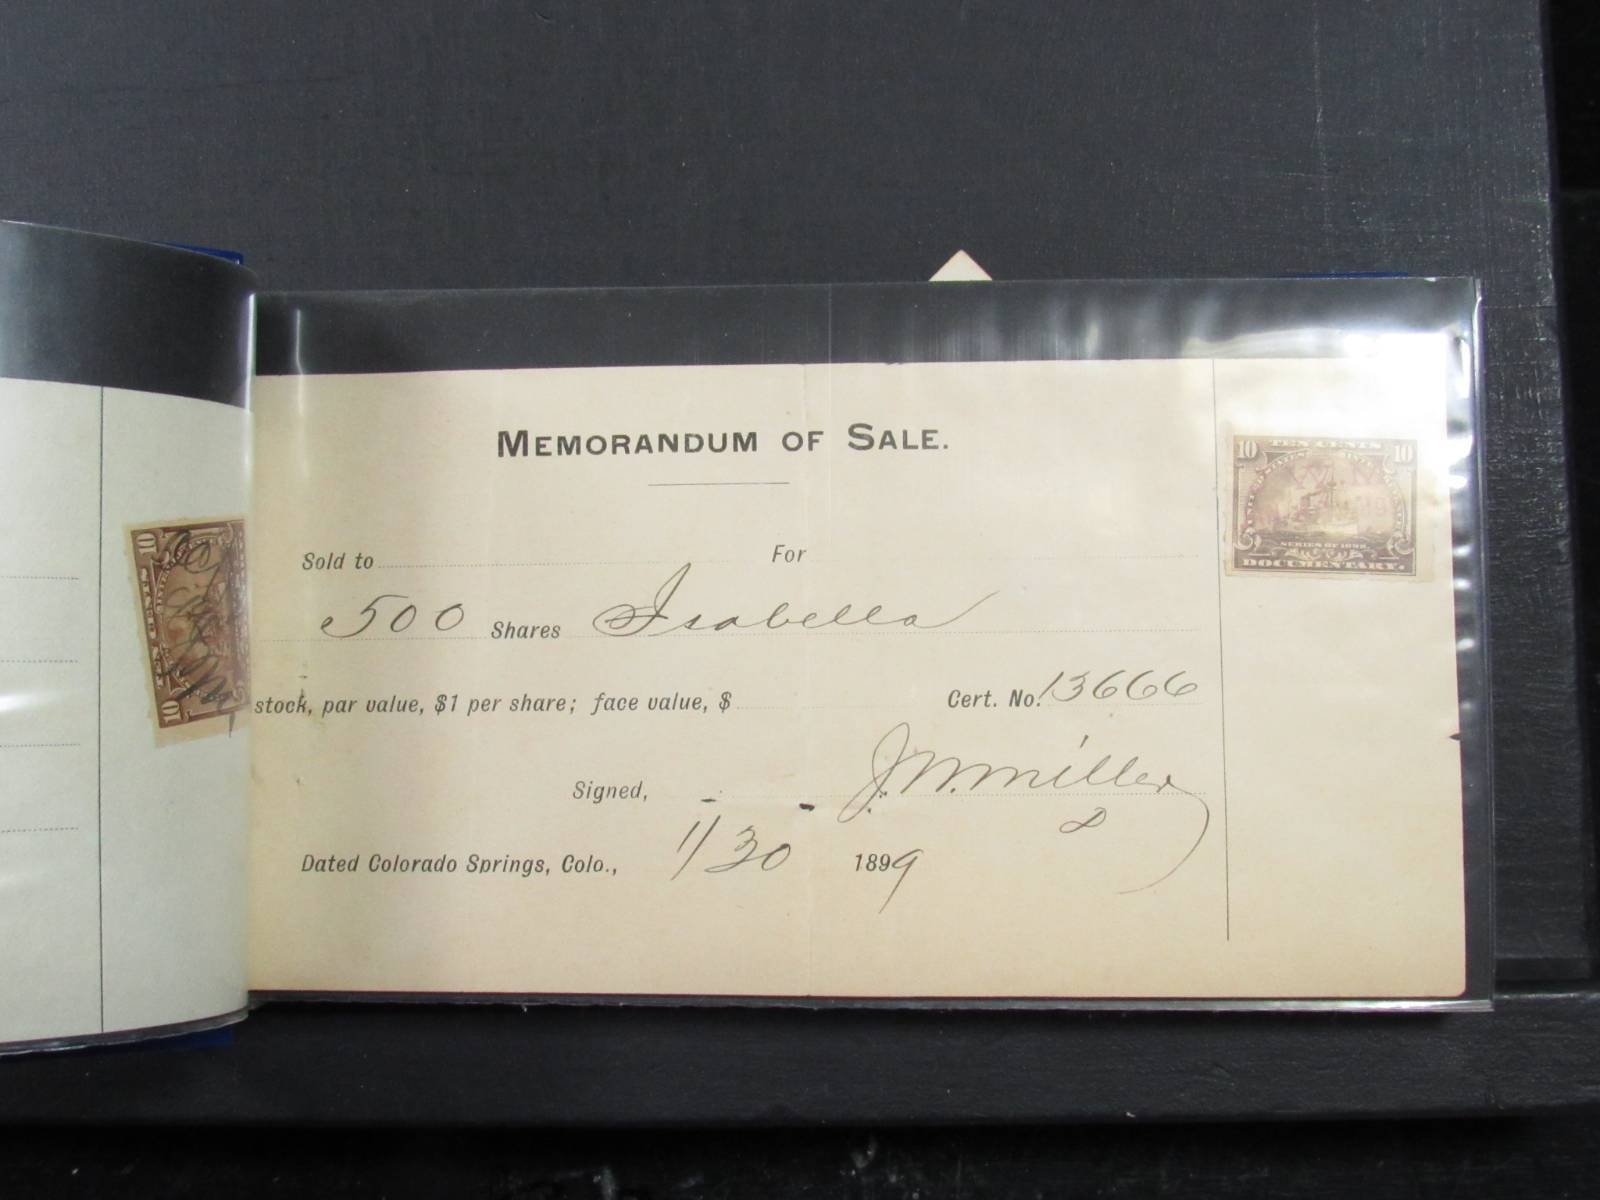 MEMORANDUM OF SALE.
Sold to For
500 Shares Isabella
stock, par value, $1 per share; face value, $ Cert. No. 13666
Signed, J. M. Miller
Dated Colorado Springs, Colo., 1/30 1899
10 TEN CENTS 10
SERIES OF 1898
DOCUMENTARY.
10 TEN CENTS 10